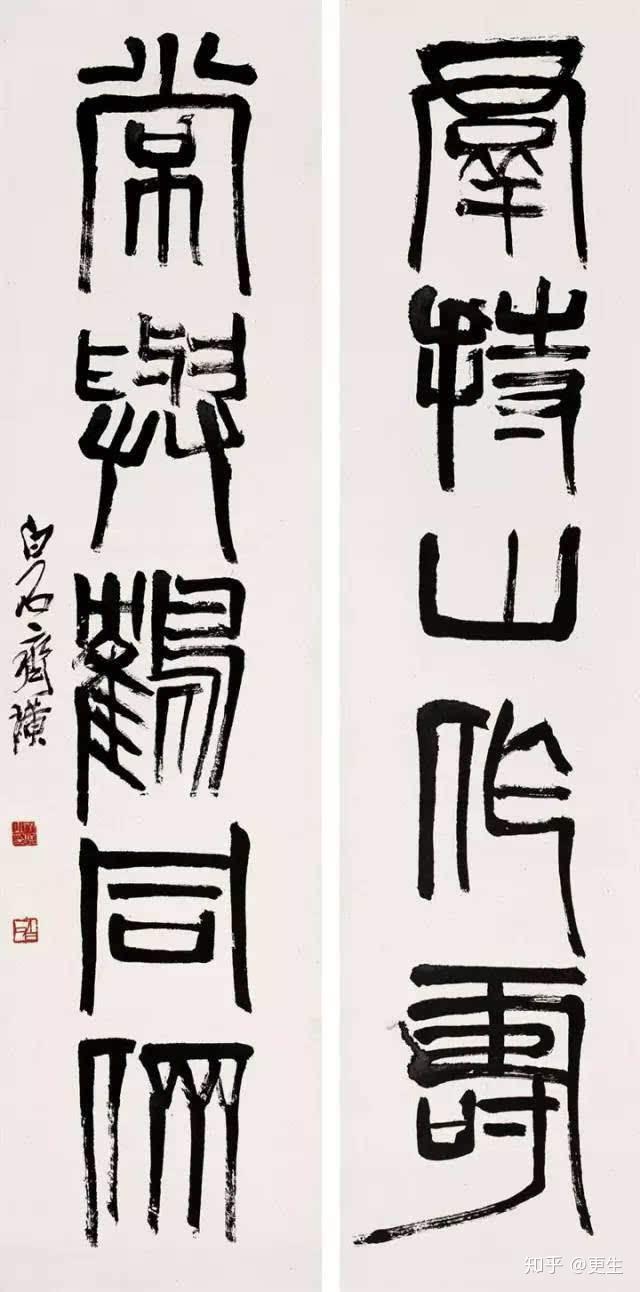 羣持山作壽
常與鶴同儕
白石齊璜
知乎 @更生